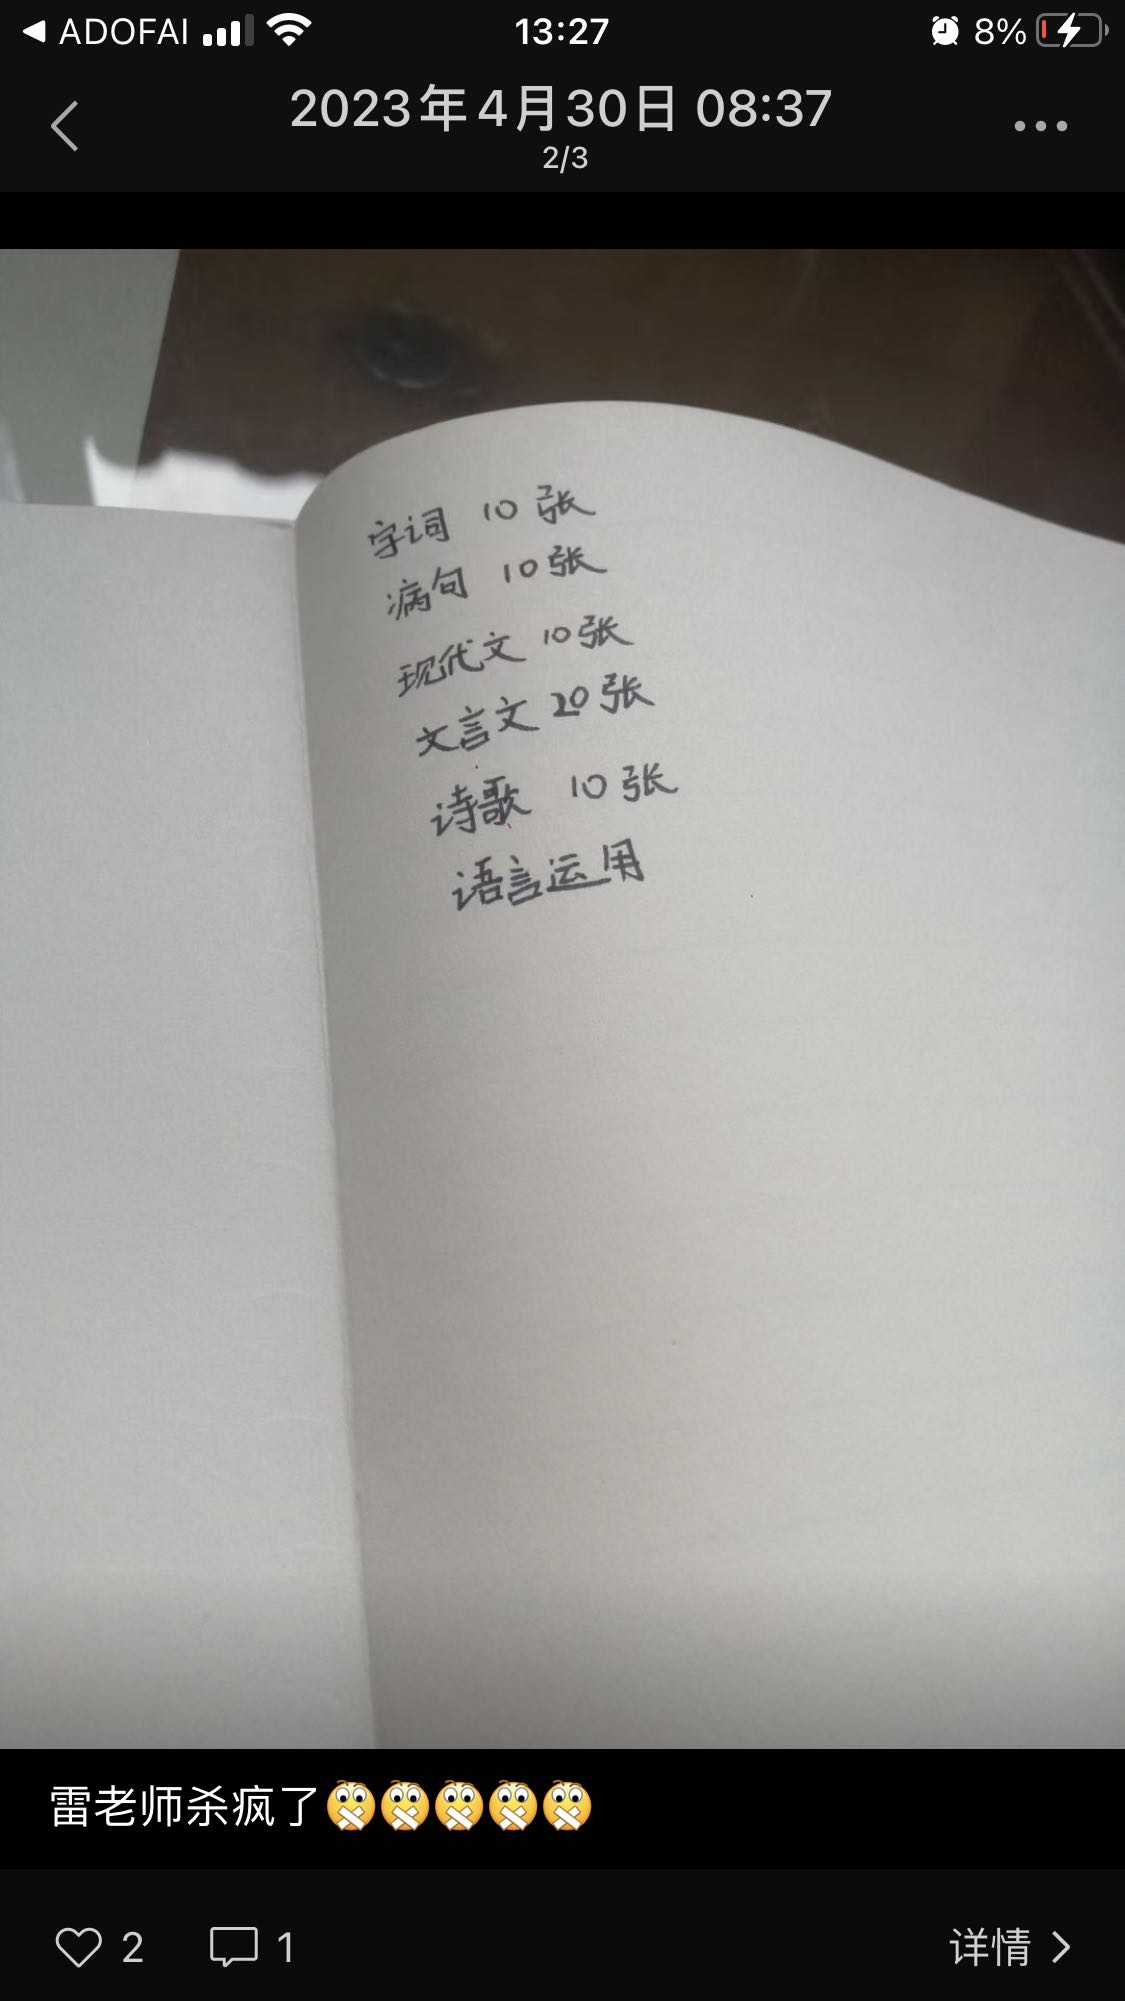 ADOFAI 13:27 8%
2023年4月30日 08:37
2/3
字词 10张
病句 10张
现代文 10张
文言文 20张
诗歌 10张
语言运用
雷老师杀疯了
2 1 详情